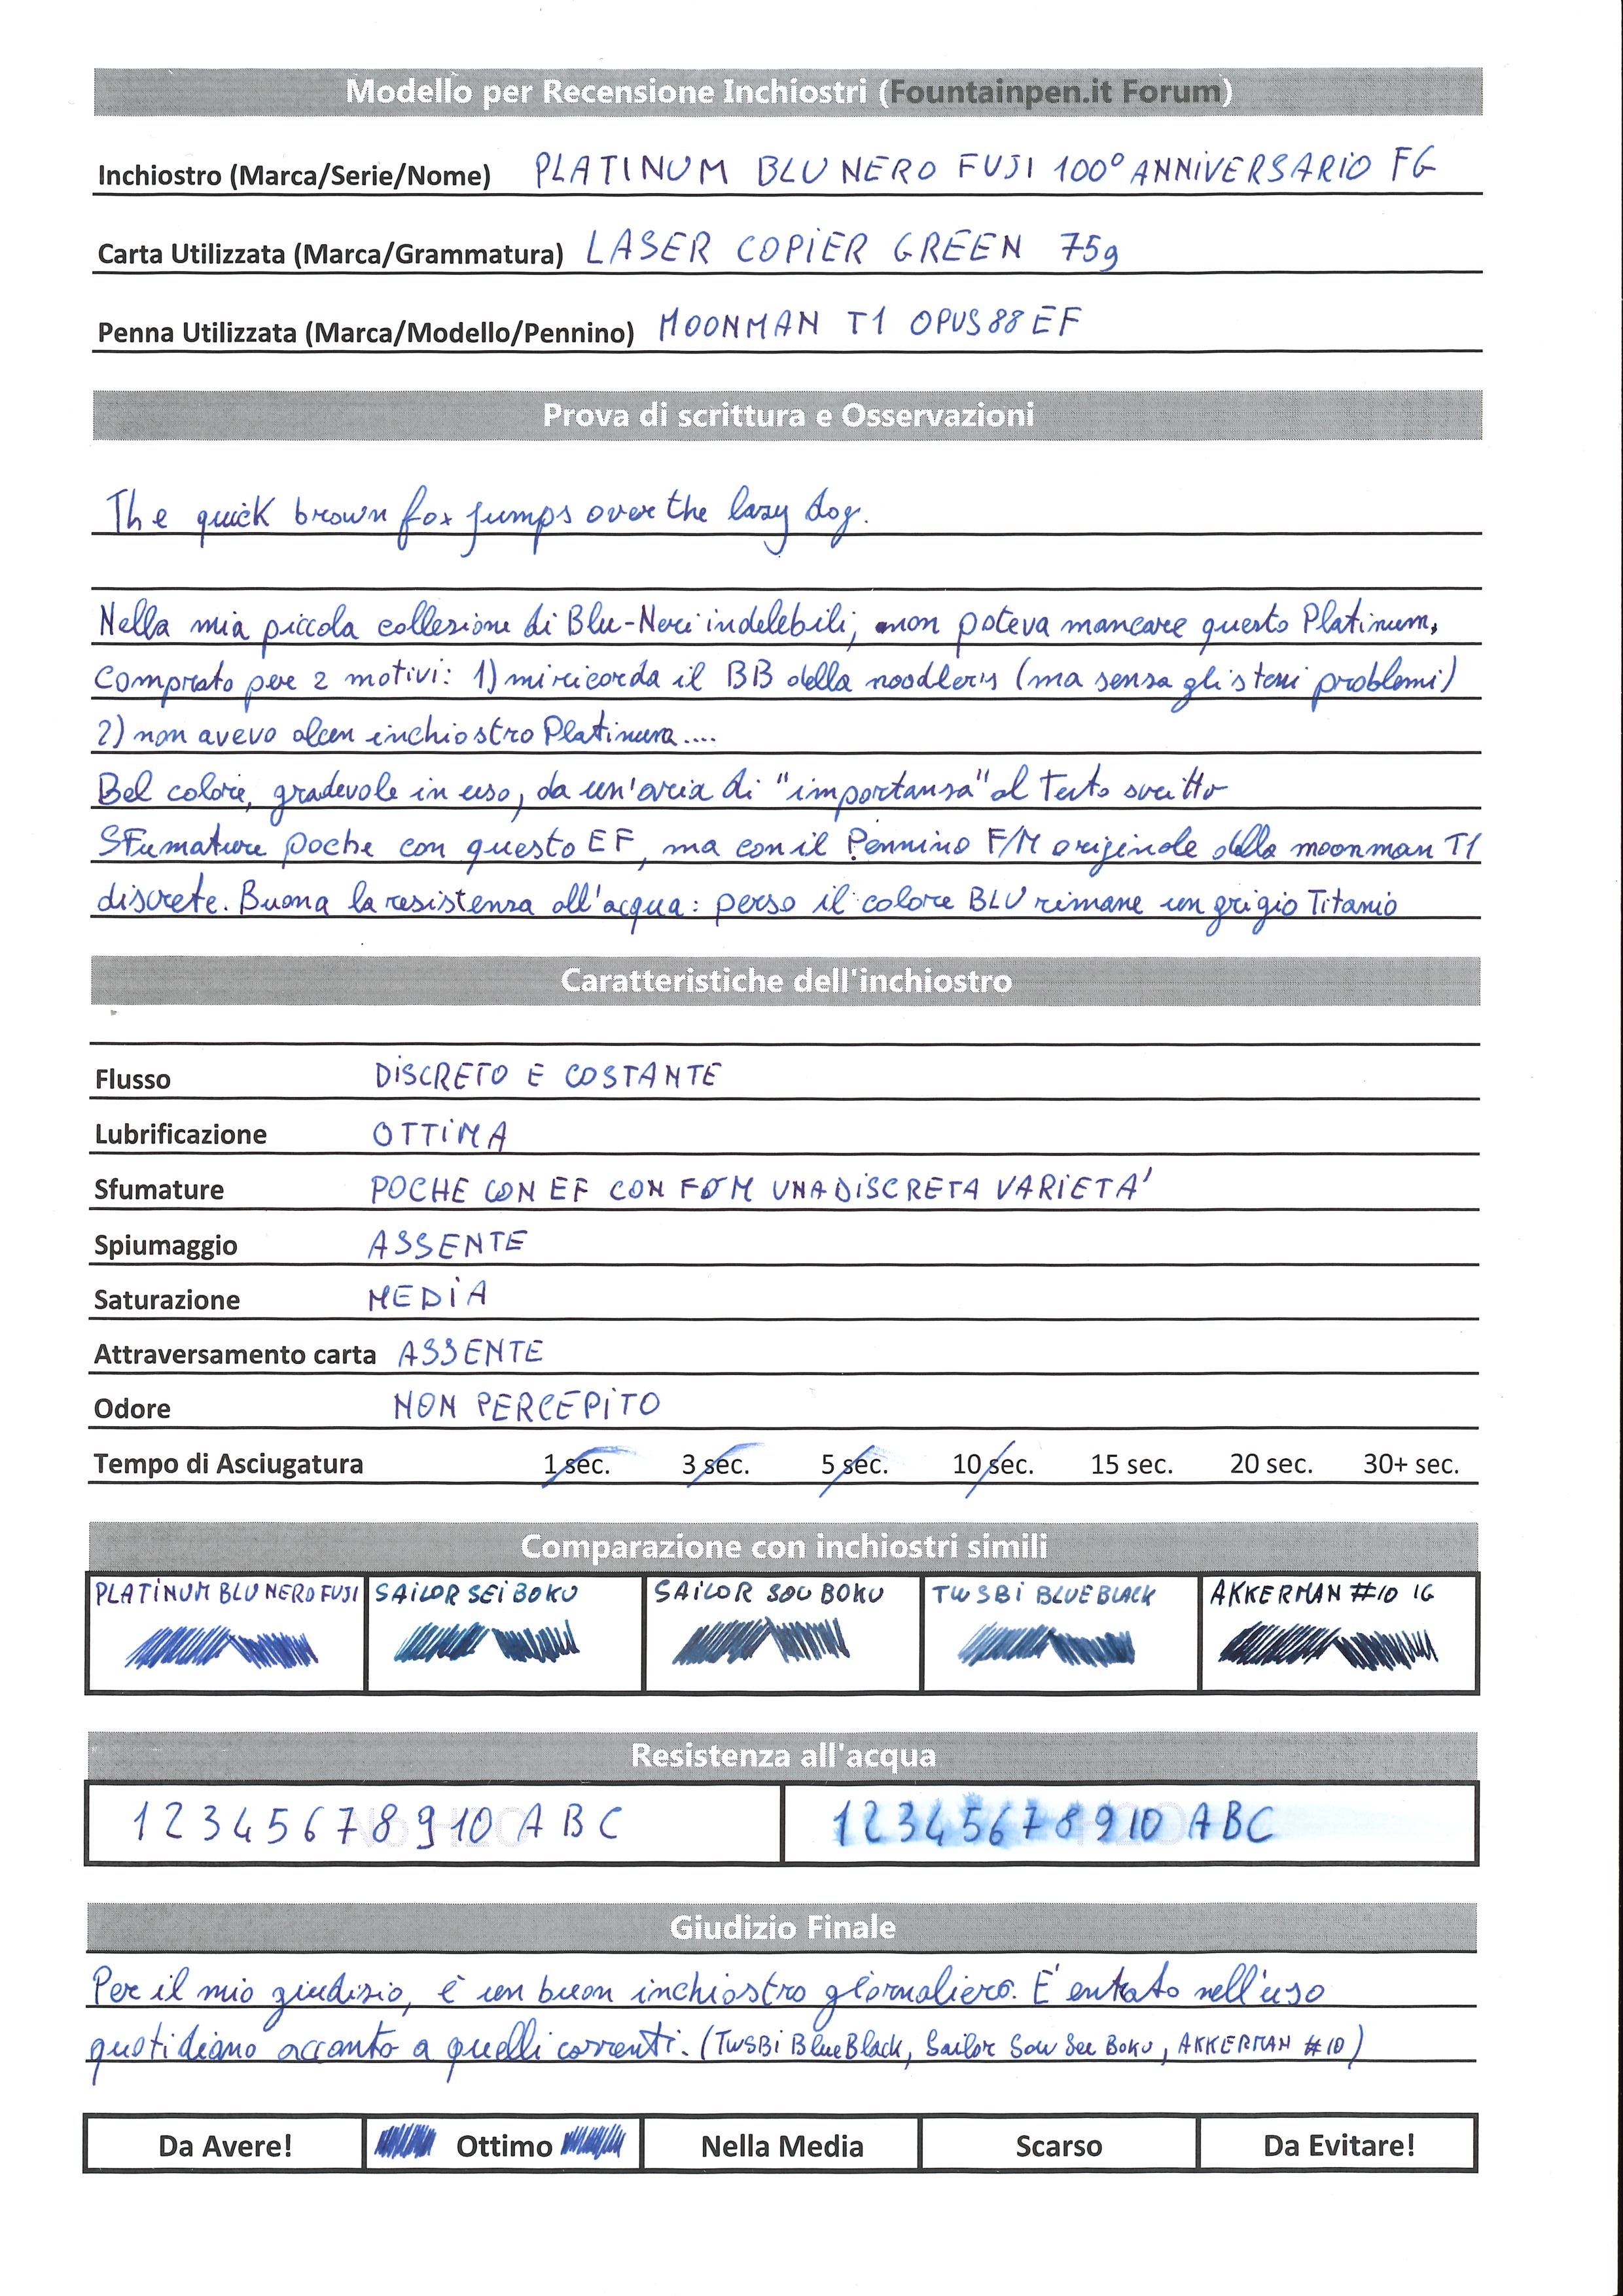 Modello per Recensione Inchiostri (Fountainpen.it Forum)
Inchiostro (Marca/Serie/Nome) PLATINUM BLU NERO FUJI 100° ANNIVERSARIO FG
Carta Utilizzata (Marca/Grammatura) LASER COPIER GREEN 75g
Penna Utilizzata (Marca/Modello/Pennino) MOONMAN T1 OPUS 88 EF
Prova di scrittura e Osservazioni
The quick brown fox jumps over the lazy dog.
Nella mia piccola collezione di Blu-Neri indelebili, non poteva mancare questo Platinum,
Comprato per 2 motivi: 1) mi ricorda il BB della noodlers (ma senza gli stessi problemi)
2) non avevo alcun inchiostro Platinum....
Bel colore, gradevole in uso, da un'aria di "importanza" al testo scritto
Sfumature poche con questo EF, ma con il Pennino F/M originale della moonman T1
discrete. Buona la resistenza all'acqua: perso il colore BLU rimane un grigio Titanio
Caratteristiche dell'inchiostro
Flusso DISCRETO E COSTANTE
Lubrificazione OTTIMA
Sfumature POCHE CON EF CON F O M UNA DISCRETA VARIETA'
Spiumaggio ASSENTE
Saturazione MEDIA
Attraversamento carta ASSENTE
Odore NON PERCEPITO
Tempo di Asciugatura 1 sec. 3 sec. 5 sec. 10 sec. 15 sec. 20 sec. 30+ sec.
Comparazione con inchiostri simili
PLATINUM BLU NERO FUJI SAILOR SEI BOKU SAILOR SOU BOKU TWSBI BLUE BLACK AKKERMAN #10 IG
Resistenza all'acqua
1 2 3 4 5 6 7 8 9 10 A B C 1 2 3 4 5 6 7 8 9 10 A B C
Giudizio Finale
Per il mio giudizio, è un buon inchiostro giornaliero. E' entrato nell'uso
quotidiano accanto a quelli correnti. (TWSBI Blue Black, Sailor Sou Sei Boku, AKKERMAN #10)
Da Avere! Ottimo Nella Media Scarso Da Evitare!